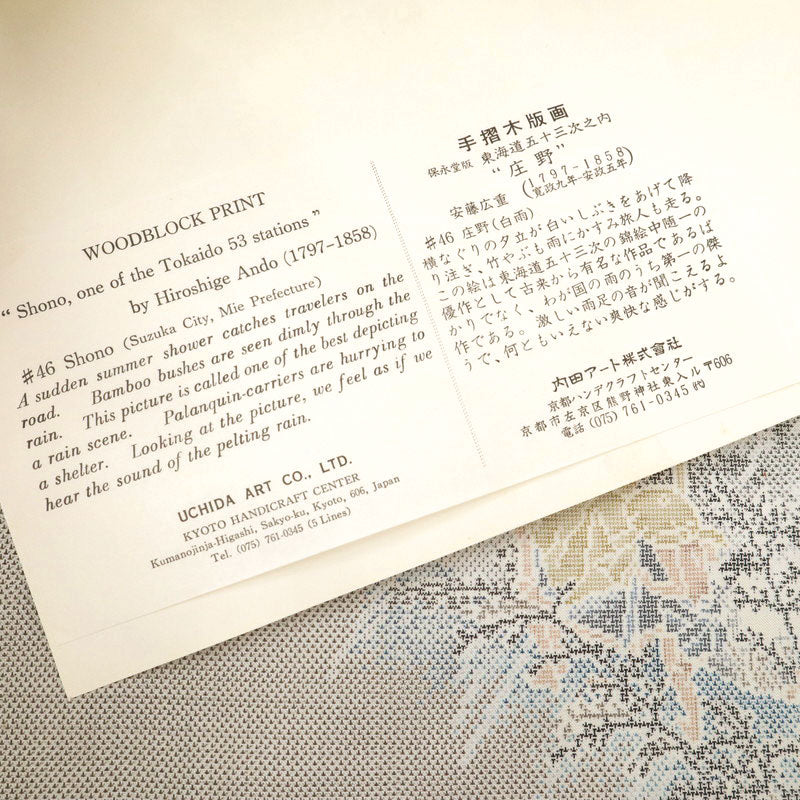 WOODBLOCK PRINT
“Shono, one of the Tokaido 53 stations”
by Hiroshige Ando (1797–1858)
#46 Shono (Suzuka City, Mie Prefecture)
A sudden summer shower catches travelers on the
road. Bamboo bushes are seen dimly through the
rain. This picture is called one of the best depicting
a rain scene. Palanquin-carriers are hurrying to
a shelter. Looking at the picture, we feel as if we
hear the sound of the pelting rain.
UCHIDA ART CO., LTD.
KYOTO HANDICRAFT CENTER
Kumanojinja-Higashi, Sakyo-ku, Kyoto, 606, Japan
Tel. (075) 761-0345 (5 Lines)
手摺木版画
保永堂版 東海道五十三次之内
“庄野”
安藤広重 (1797-1858 寛政九年-安政五年)
#46 庄野(白雨)
横なぐりの夕立が白いしぶきをあげて降
り注ぎ、竹やぶも雨にかすみ旅人も走る。
この絵は東海道五十三次の錦絵中随一の
優作として古来から有名な作品であるば
かりでなく、わが国の雨のうち第一の傑
作である。激しい雨足の音が聞こえるよ
うで、何ともいえない爽快な感じがする。
内田アート株式会社
京都ハンデクラフトセンター
京都市左京区熊野神社東入ル〒606
電話 (075) 761-0345 ㈹